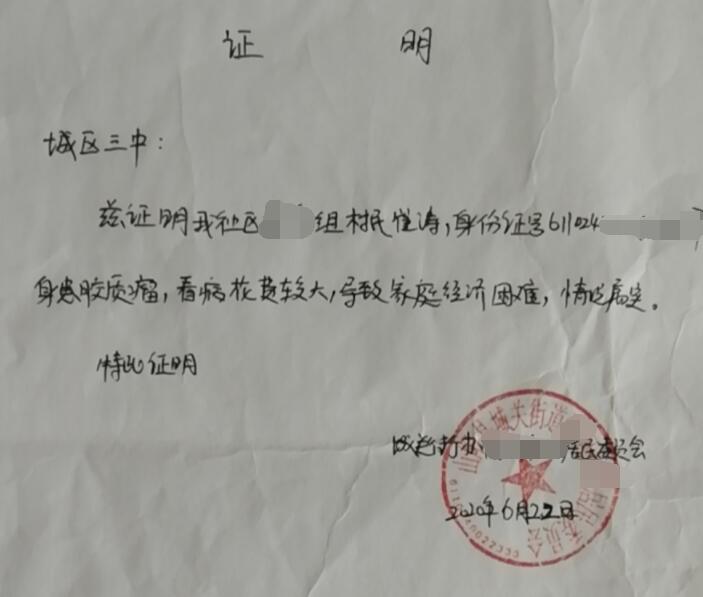 证 明
城区三中：
兹证明我社区 组村民崔涛，身份证号611024
身患胶质瘤，看病花费较大，导致家庭经济困难，情况属实。
特此证明
城关街办 居民委员会
2020年6月22日
山 县城关街道 居民委员会